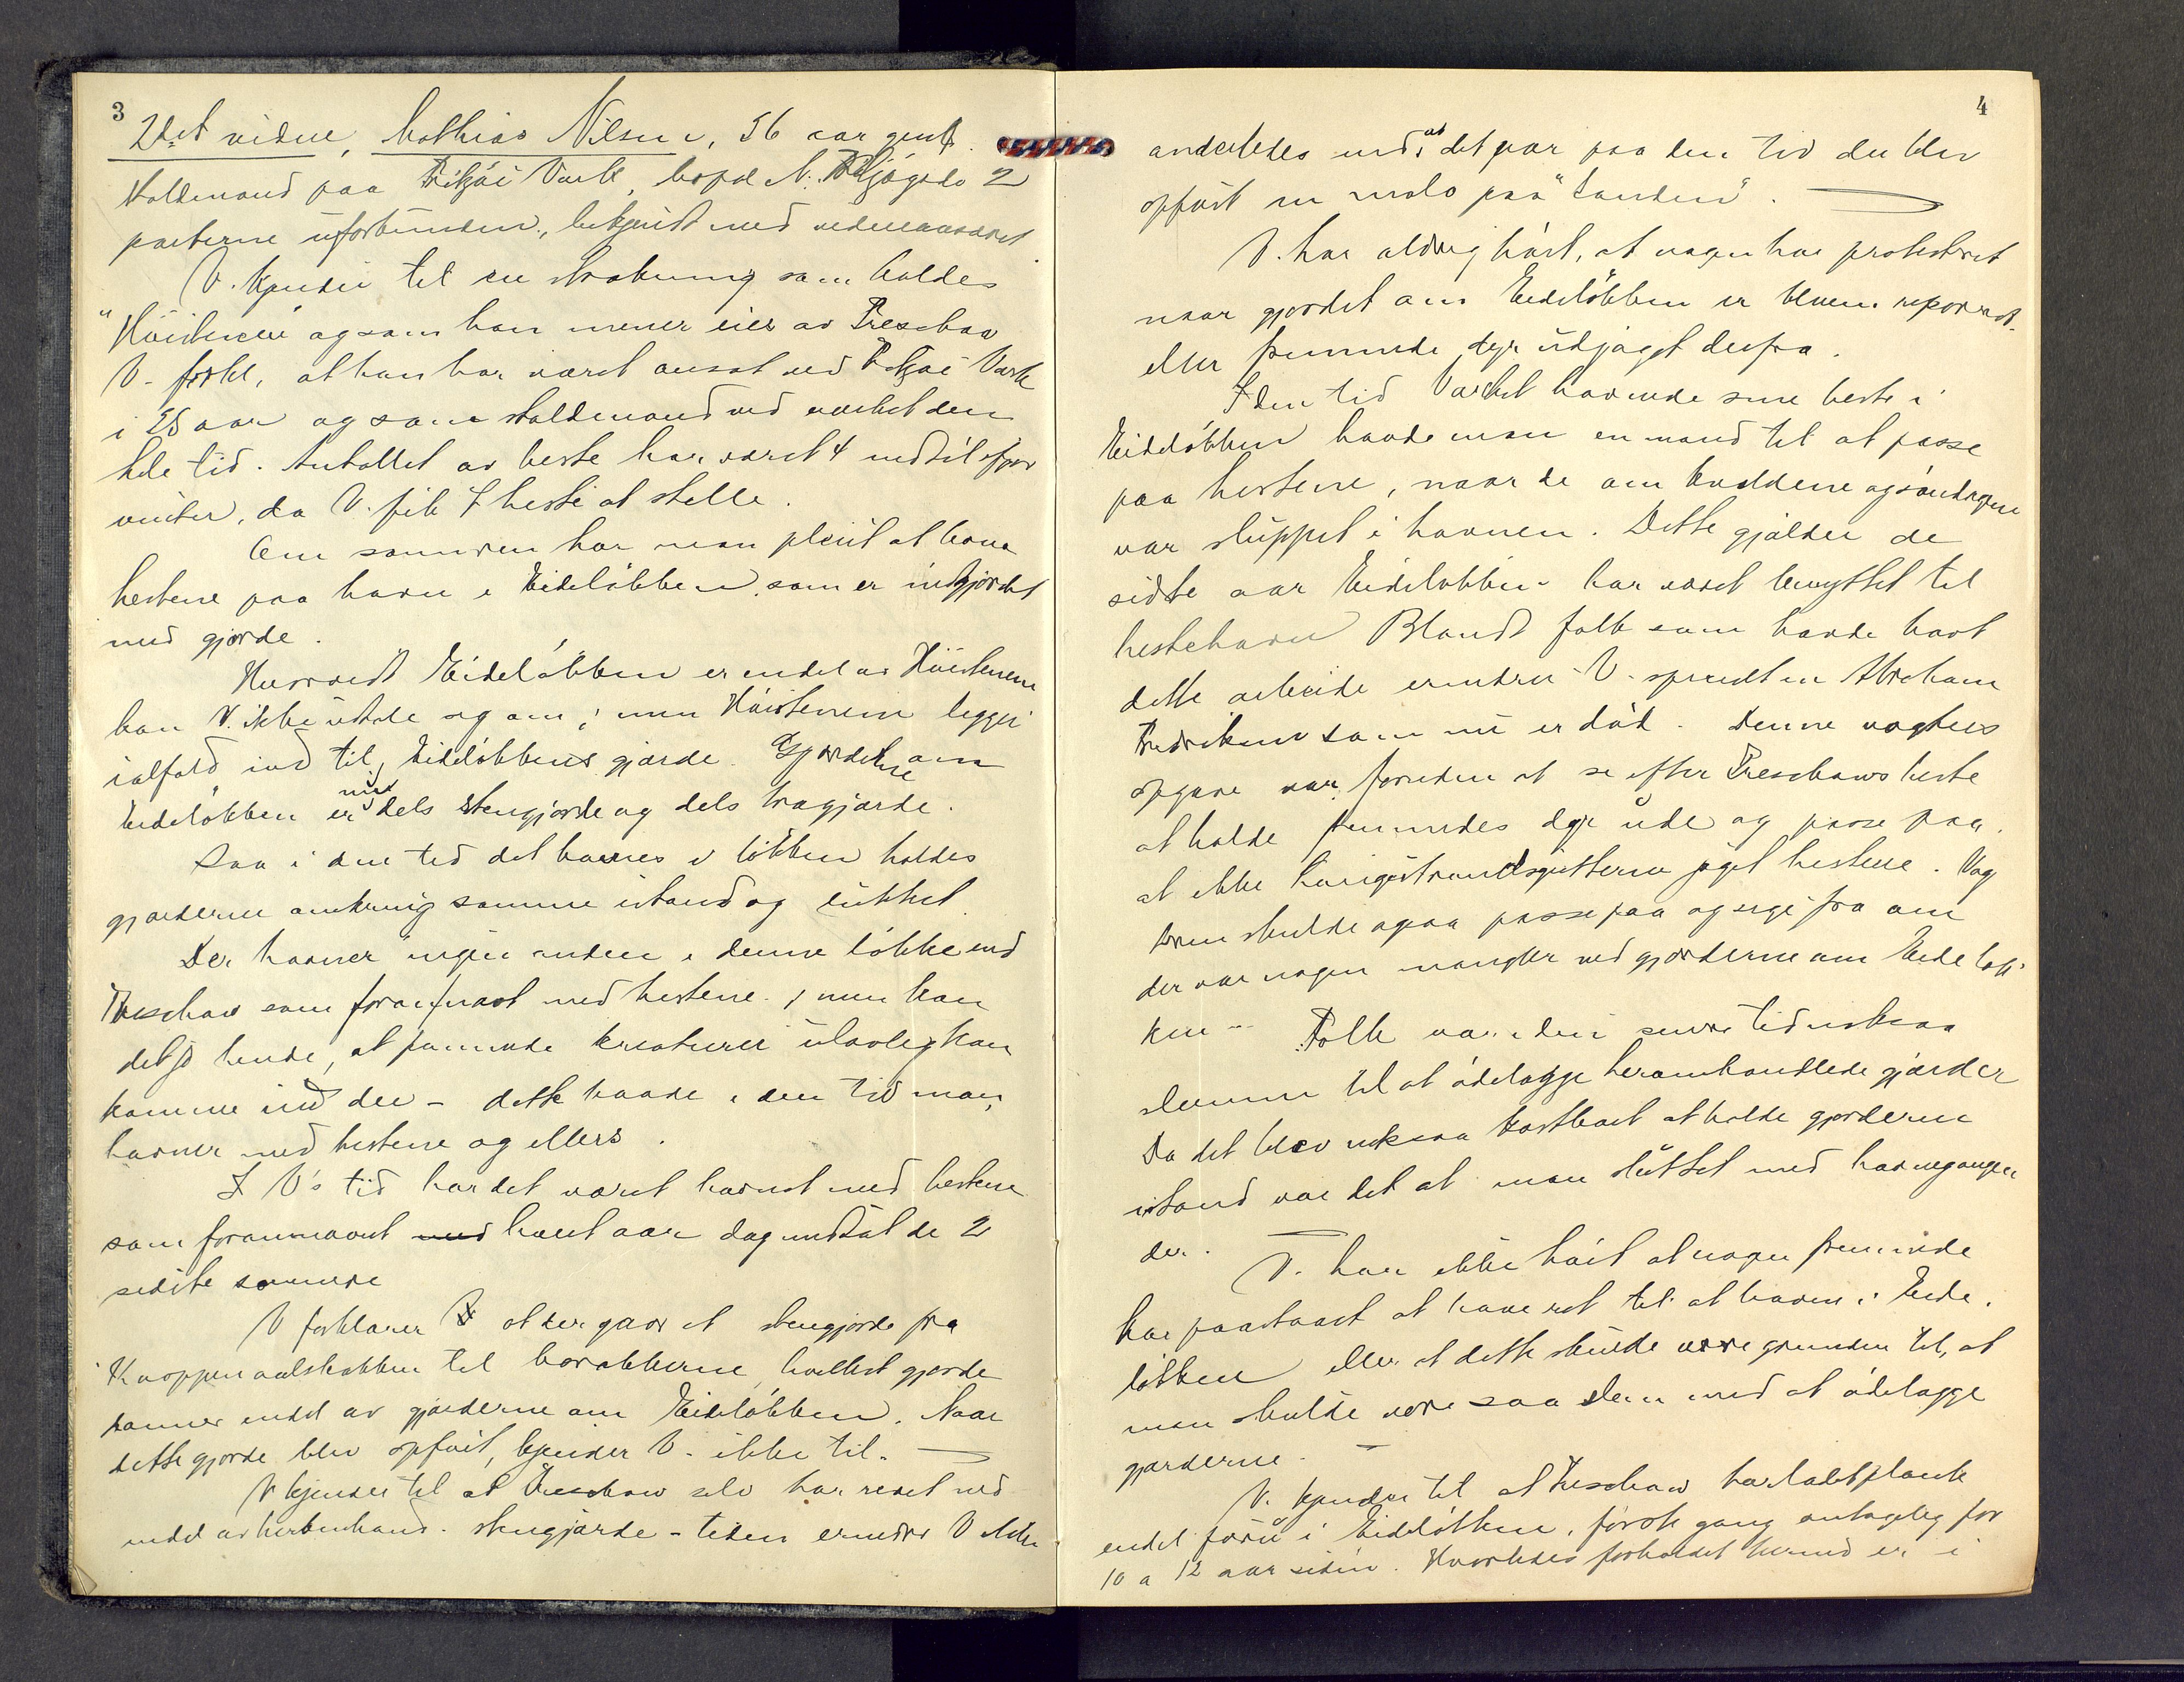 3
2det vidne, Mathias Nilsen, 56 aar gml.
staldmand paa Fritzøe Værk, bopæl N.
parterne uforbunden, bekjendt med vidneansvaret
V. kjender til en strækning som kaldes
"Høistenene" og som han mener eies av Treschow
V. forkl., at han har været ansat ved Fritzøe Værk
i 25 aar og som staldmand ved værket den
hele tid. Antallet av heste har været 4 indtil ifjor
vinter, da V. fik 7 heste at stelle.
Om sommeren har man pleiet at have
hestene paa havn i Eideløkken, som er indgjærdet
med gjærde.
Hvorvidt Eideløkken er endel av Høistenene
kan V. ikke uttale sig om; men Høistenene ligger
ialfald ind til Eideløkkens gjærde. Gjærdene om
Eideløkken er nu dels stengjærde og dels trægjærde.
Saa i den tid det havnes i løkken holdes
gjærderne omkring samme istand og lukket.
Der havner ingen anden i denne løkke end
Treschow som forannævnt med hestene; men kan
det jo hende, at fremmede kreaturer ulovlig kan
komme ind der – dette baade i den tid man
havner med hestene og ellers.
I V's tid har det været havnet med hestene
som forannævnt med hvert aar dog undtat de 2
sidste sommere
V forklarer at der gaar et stengjærde fra
til barakkerne, hvilket gjærde
danner endel av gjærderne om Eideløkken. Naar
dette gjærde blev opført, kjender V. ikke til. —
V kjender til at Treschow selv har revet ned
endel av herhenhand. stengjærde – tiden erindrer V ikke
4
anderledes end at det var paa den tid der blev
opført en molo paa "Tanden". —
V. har aldrig hørt, at nogen har protestert
naar gjærdet om Eideløkken er bleven reparert
eller fremmede dyr utjaget derfra.
I den tid Værket havnede sine heste i
Eideløkken havde man en mand til at passe
paa hestene, naar de om kveldene og søndagene
var sluppet i havnen. Dette gjælder de
sidste aar Eideløkken har været benyttet til
hestehavn Blandt folk som havde havt
dette arbeide erindrer V. specielt en Abraham
Fredriksen som nu er død. Denne vogters
opgave var, foruden at se efter Treschows heste
at holde fremmedes dyr ude og passe paa,
at ikke Langestrandsgutterne jaget hestene. Vog
teren skulde ogsaa passe paa og sige fra om
der var nogen mangler ved gjærderne om Eideløk
ken — Folk var i den senere tid nokså
slemme til at ødelægge heromhandlede gjærder
Da det blev noksaa kostbart at holde gjærderne
istand var det at man sluttet med havnegangen
der. —
V. har ikke hørt at nogen fremmede
har paastaat at have ret til at havne i Eide
løkken eller at dette skulde være grunden til, at
man skulde være saa slem med at ødelægge
gjærderne. —
V. kjender til at Treschow har latt plante
endel furu i Eideløkken, første gang antagelig for
10 a 12 aar siden. Hvorledes forholdet hermed er i